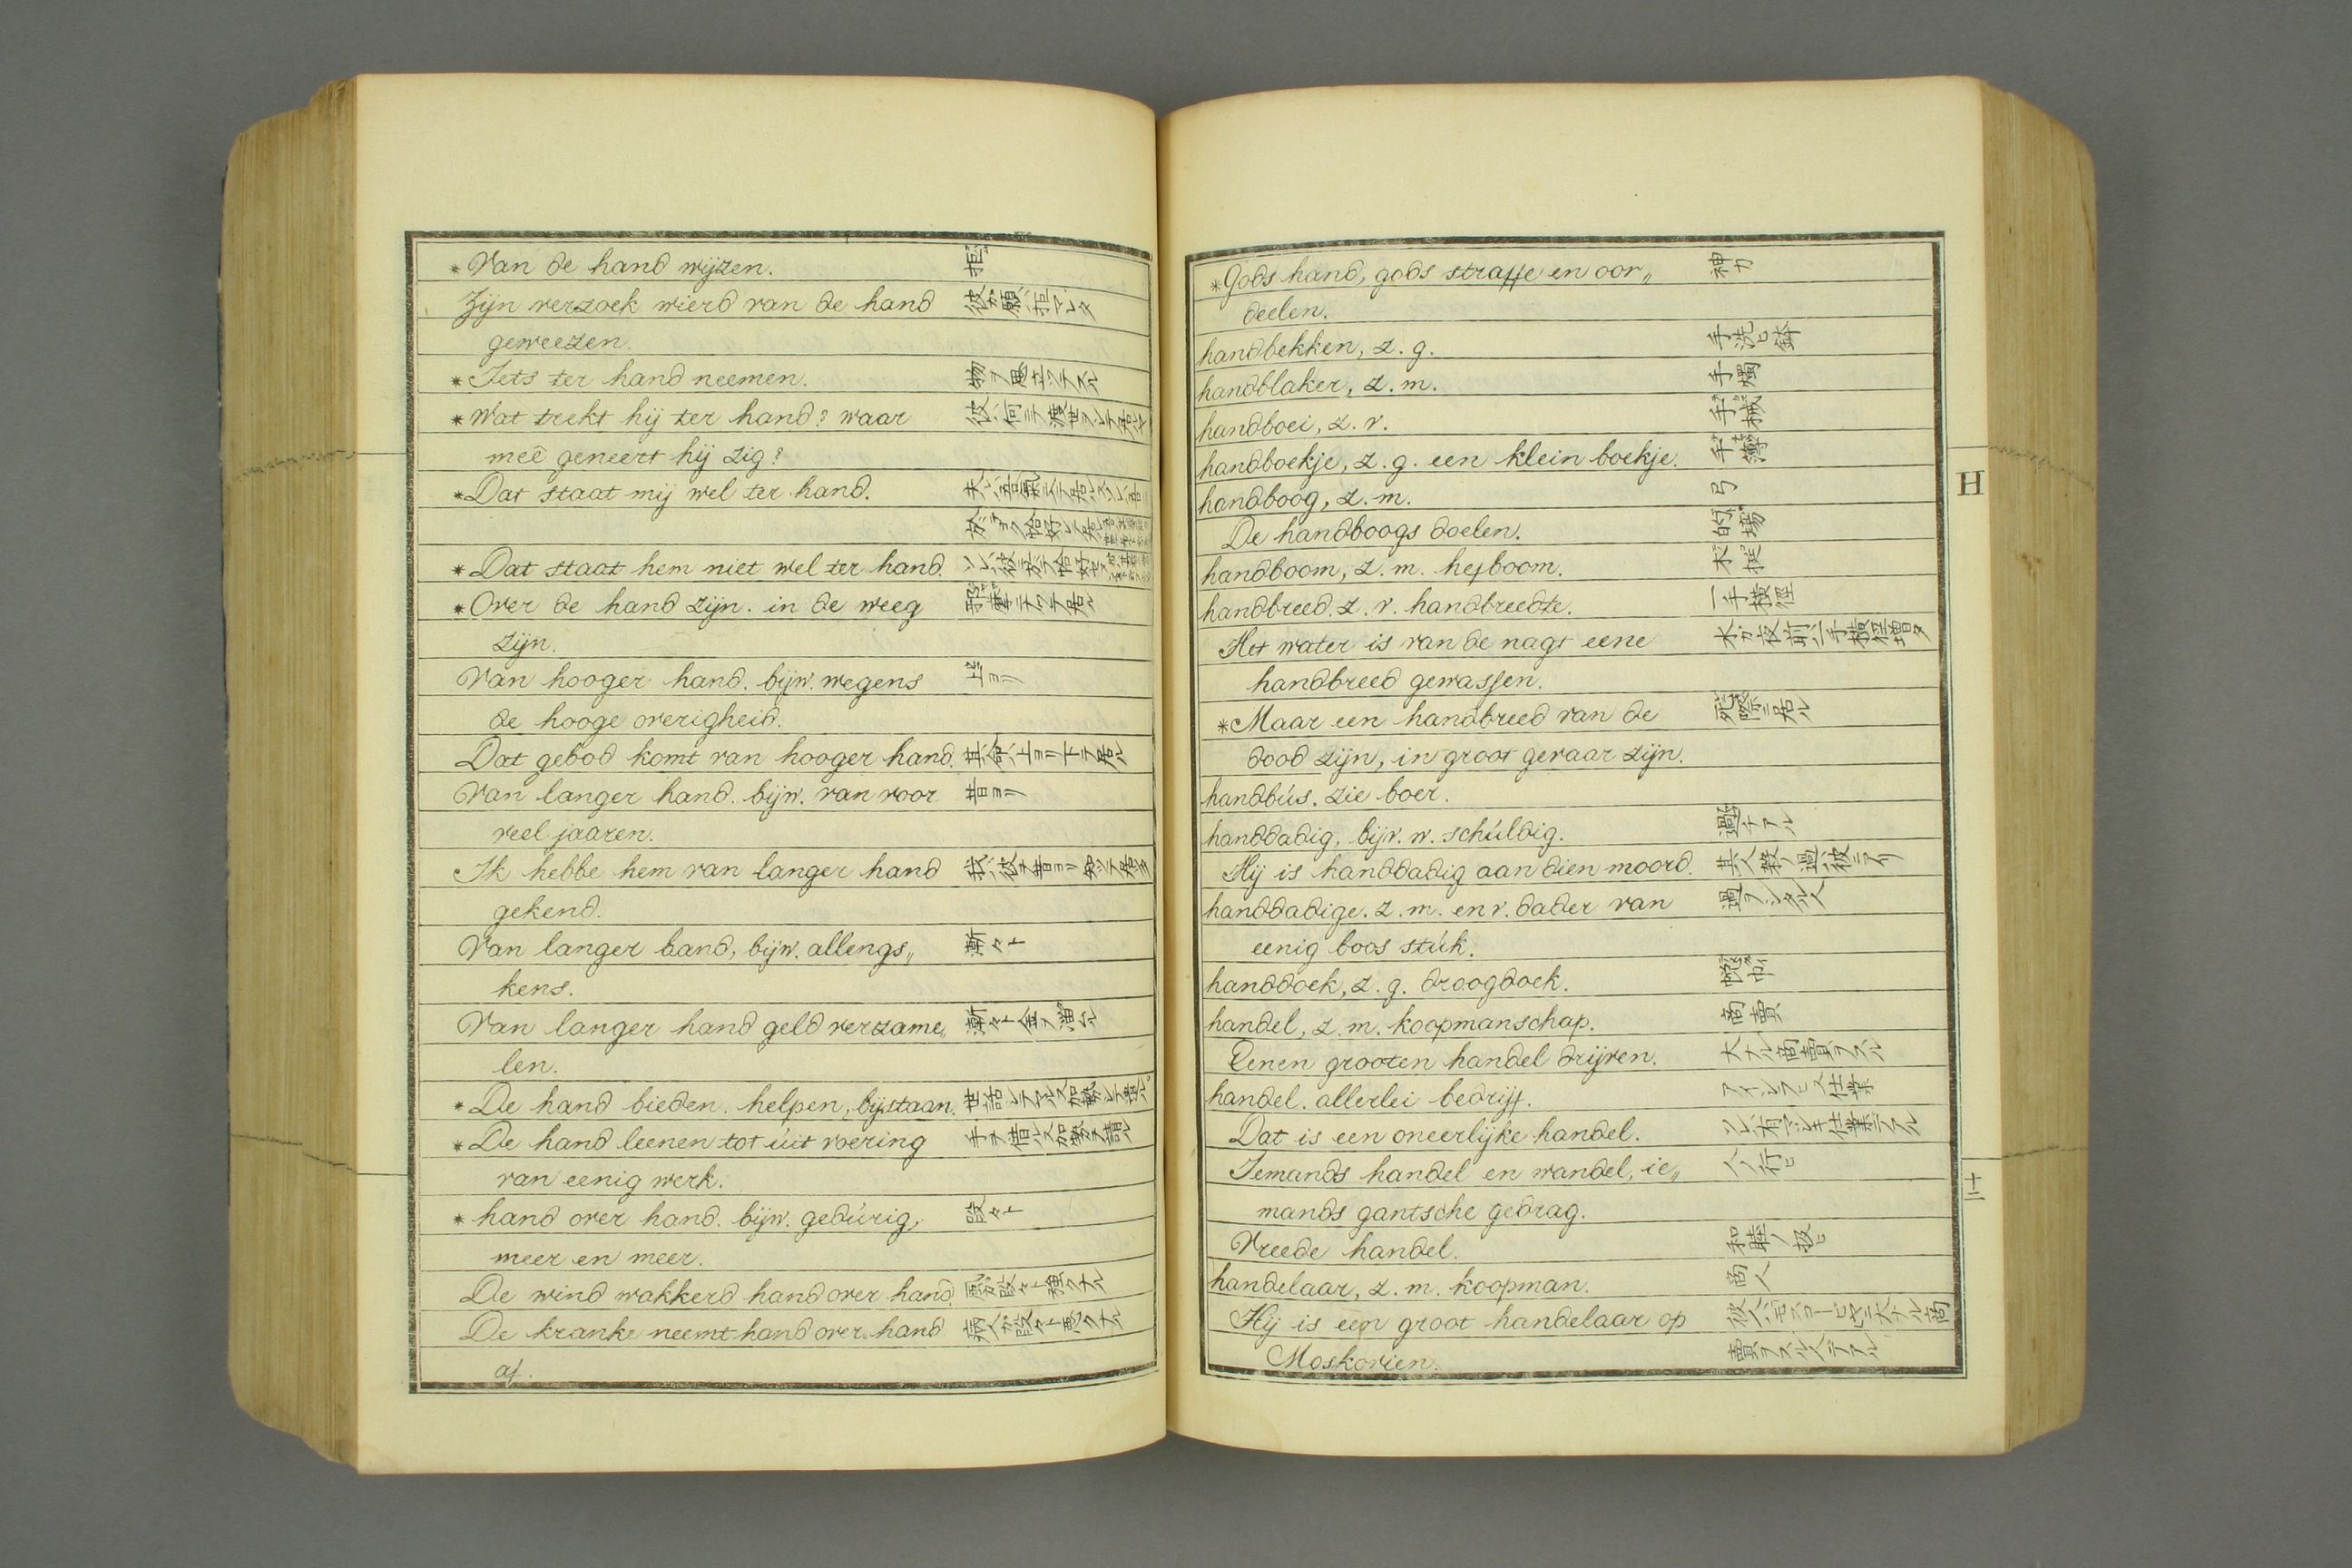 *Van de hand wijzen.
Zijn verzoek wierd van de hand 彼ガ願ハ拒マレタ
geweezen.
*Iets ter hand neemen. 物ヲ思立ツテスル
*Wat trekt hij ter hand? waar 彼ハ何ニテ渡世ヲシテ居ルヤ
meê geneert hij zig?
*Dat staat mij wel ter hand.
*Dat staat hem niet wel ter hand.
*Over de hand zijn. in de weeg 邪魔ニナツテ居ル
zijn.
Van hooger hand. bijw. wegens 上ヨリ
de hooge overigheid.
Dat gebod komt van hooger hand. 其命ハ上ヨリ下テ居ル
Van langer hand. bijw. van voor 昔ヨリ
veel jaaren.
Ik hebbe hem van langer hand 我ハ彼ヲ昔ヨリ知ツテ居ル
gekend.
Van langer hand, bijw. allengs„ 漸々ト
kens.
Van langer hand geld verzame„ 漸々ト金ヲ溜ル
len.
*De hand bieden. helpen, bijstaan.
*De hand leenen tot úit voering
van eenig werk.
*hand over hand. bijw. gedúrig, 段々ト
meer en meer.
De wind wakkerd hand over hand. 風ガ段々ト強クナル
De kranke neemt hand over hand 病人ガ段々ト悪クナル
af.
*Gods hand, gods straffe en oor„ 神力
deelen.
handbekken, z. g. 手洗ヒ鉢
handblaker, z. m. 手燭
handboei, z. v. 手械
handboekje, z. g. een klein boekje. 手簿
handboog, z. m. 弓
De handboogs doelen. 的場
handboom, z. m. hefboom. 木挺
handbreed. z. v. handbreedte. 一手横径
Het water is van de nagt eene 水ガ夜前一手横径増タ
handbreed gewassen.
*Maar een handbreed van de 死際ニ居ル
dood zijn, in groot gevaar zijn.
handbús. zie boer.
handdadig, bijv. w. schúldig. 過チアル
Hij is handdadig aan dien moord. 其人殺ノ過ハ彼ニアリ
handdadige. z. m. en v. dader van 過ヲシタル人
eenig boos stúk.
handdoek, z. g. droogdoek.
handel, z. m. koopmanschap. 商賣
Eenen grooten handel drijven. 大ナル商賣ヲスル
handel. allerlei bedrijf.
Dat is een oneerlijke handel.
Iemands handel en wandel, ie„ 人ノ行ヒ
mands gantsche gedrag.
Vreede handel. 和睦ノ扱ヒ
handelaar, z. m. koopman. 商人
Hij is een groot handelaar op
Moskovien. 賣ヲスル人デアル
H
十二